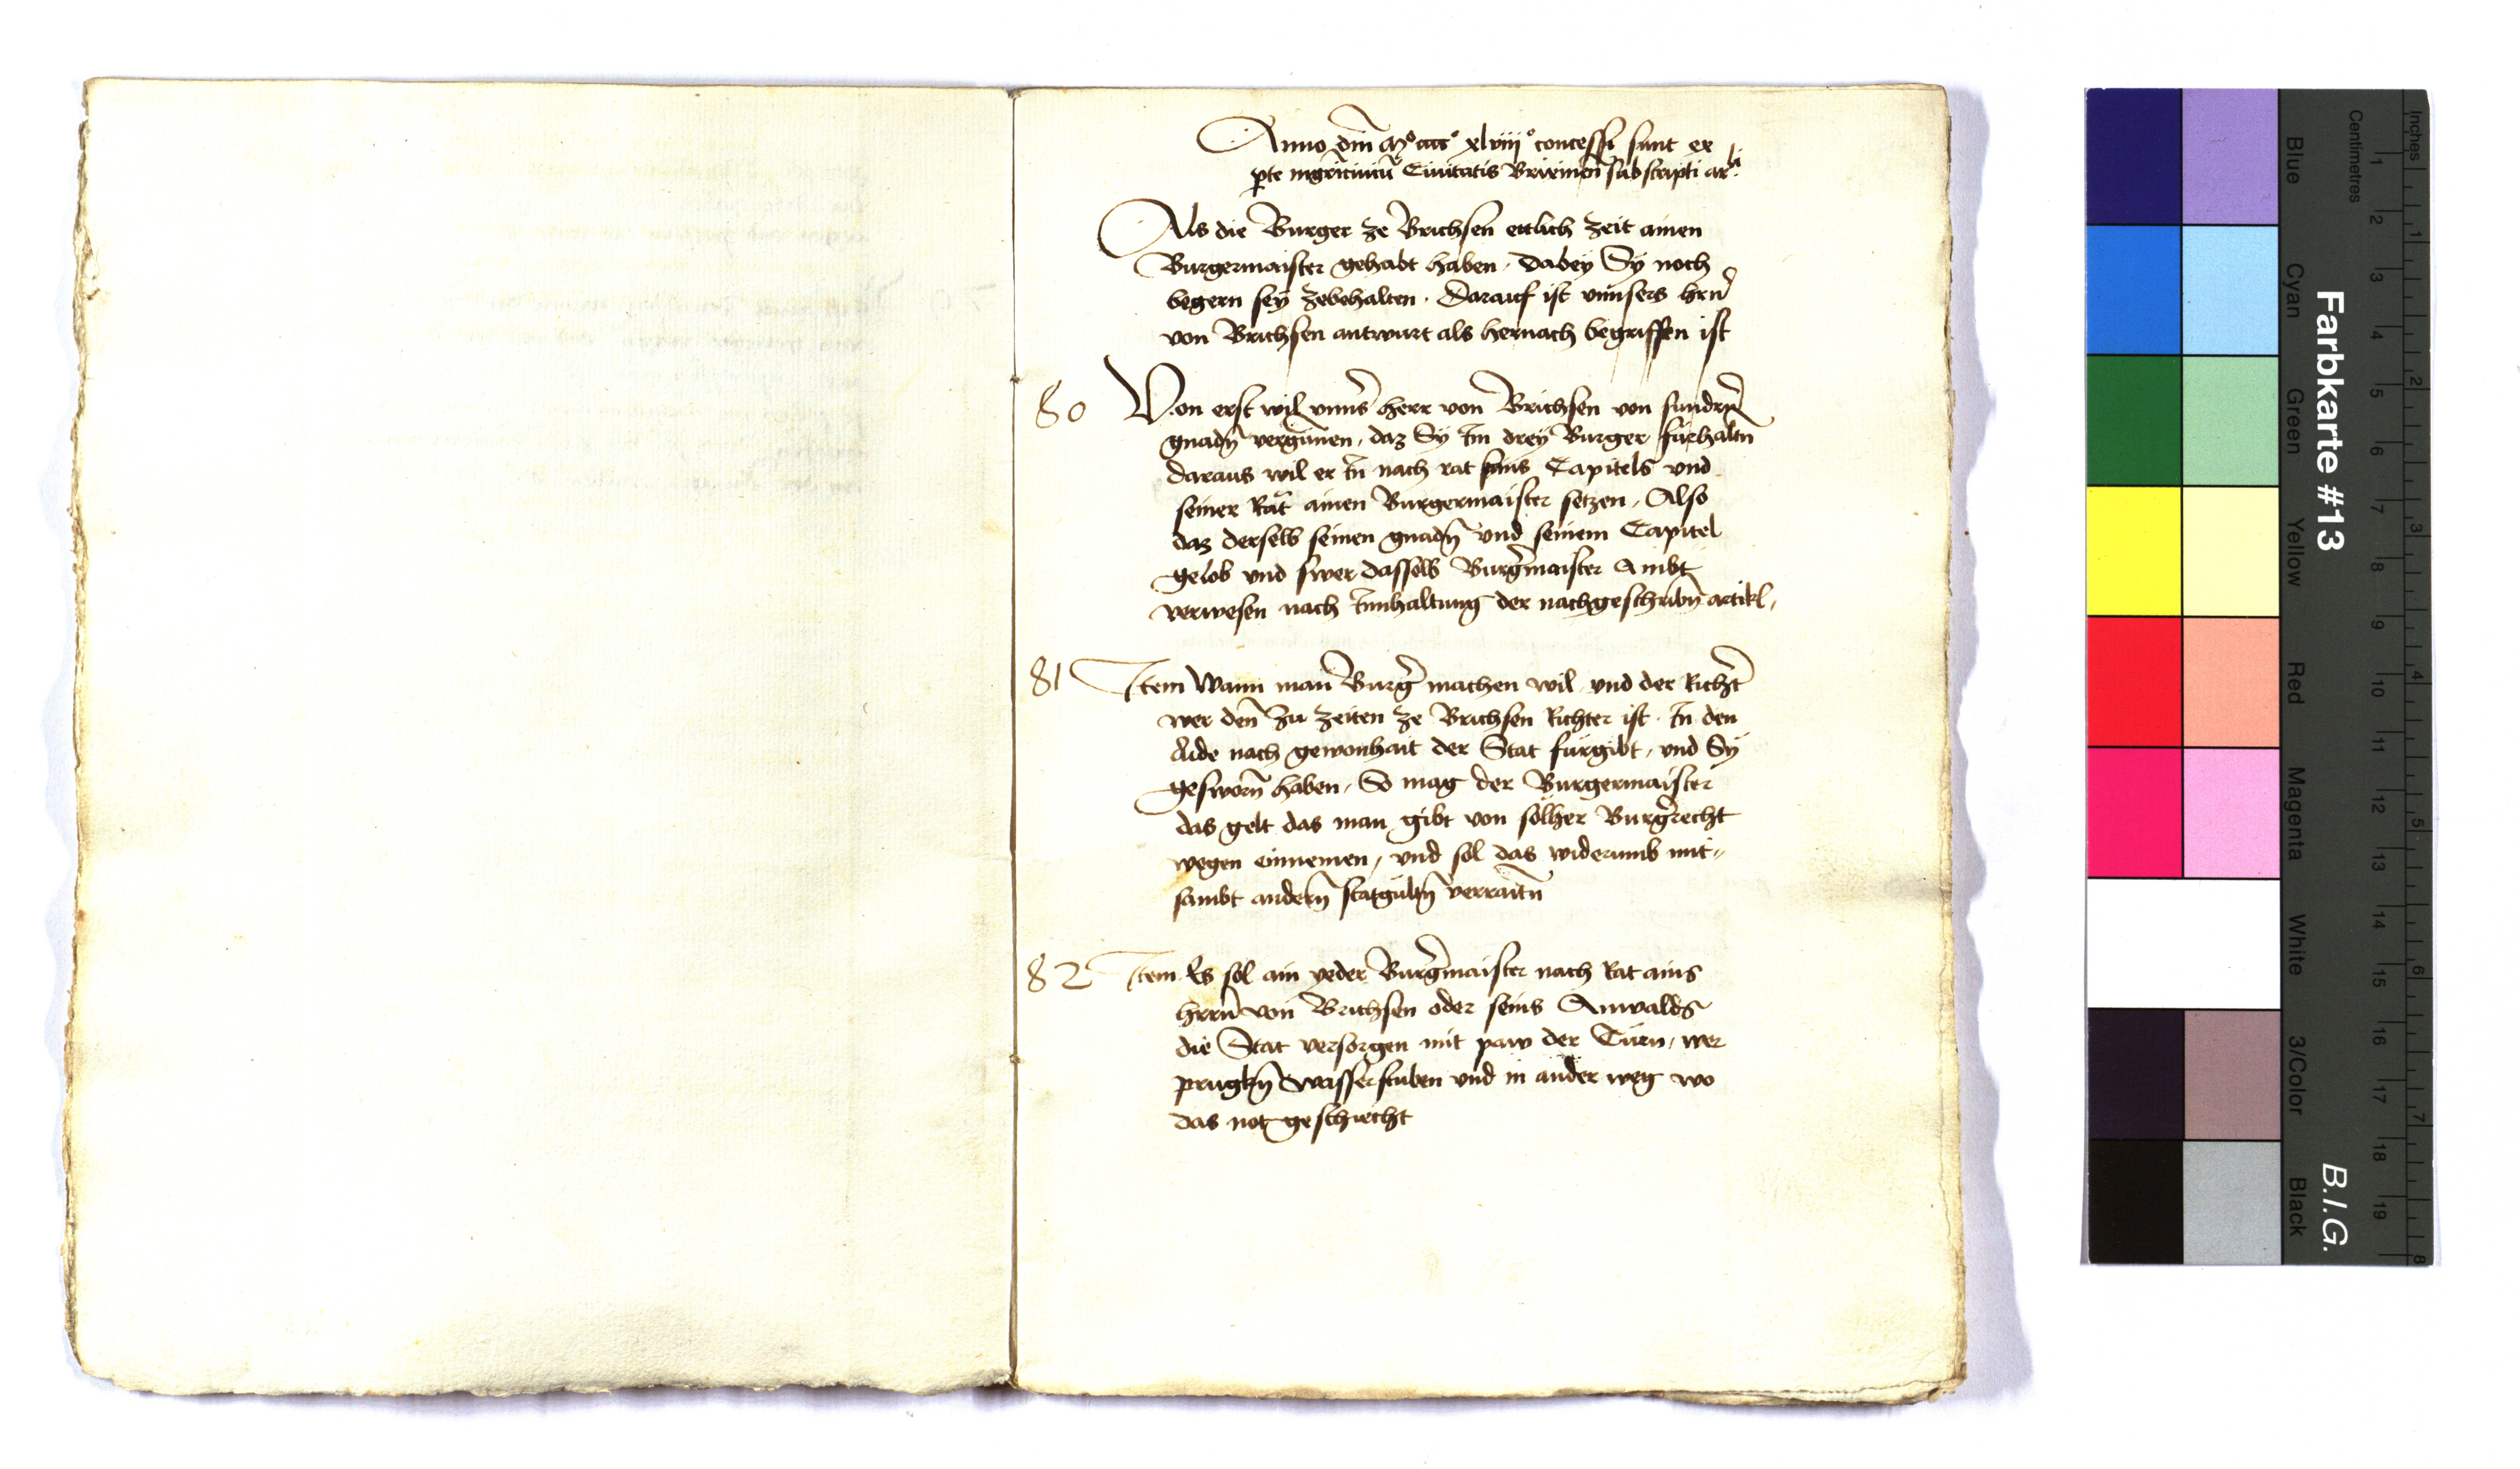 Anno dm̄ Mº cccc º xlviijº concessi sunt ex
Ciuitatis Brixineñ subscripti
Als die Burger ze Brichsen ettlich zeit ainen
Burgermaister gehabt haben, dabey Sy noch
begern sey zebehalten. Darauf ist vnnsers hrn̄
von Brichsen antwurt als hernach begriffen ist
80 Von erst wil vnns̄ herr von Brichsen von sundrn̄
gnadn̄ vergunnen, daz Sy Im drey Burger fürhaltn̄
daraus wil er In̄ nach rat seins Capitels und
seiner Rät ainen Burgermaister setzen, Also
daz derselb seinen gnadn̄ vnd seinem Capitel
gelob vnd swer dasselb Burḡmaister Ambt
verwesen nach Innhaltung der nachgeschribn̄ artikl,
81 Item Wann man Burḡ machen wil vnd der Richt̄
wer den̄ zu zeiten ze Brichsen Richter ist. In den
Aide nach gewonhait der Stat fürgibt, vnd Sy
gesworn̄ haben, So mag der Burgermaister
das gelt das man gibt von sölher Burḡrecht
wegen einnemen, vnd sol das widerumb mit-
sambt andern̄ statgültn̄ verraitn̄
82 Item Es sol ain yeder Burḡmaister nach Rat ains
hrrn̄ von Brichsen oder seins Anwalds
die Stat versorgen mit paw der Türn, wer
prugkn̄ wasserstuben vnd in ander weg wo
das not geschiecht
Farbkarte #13
B.I.G.
Blue
Cyan
Green
Yellow
Red
Magenta
White
3/Color
Black
Centimetres
1 2 3 4 5 6 7 8 9 10 11 12 13 14 15 16 17 18 19
Inches
1 2 3 4 5 6 7 8